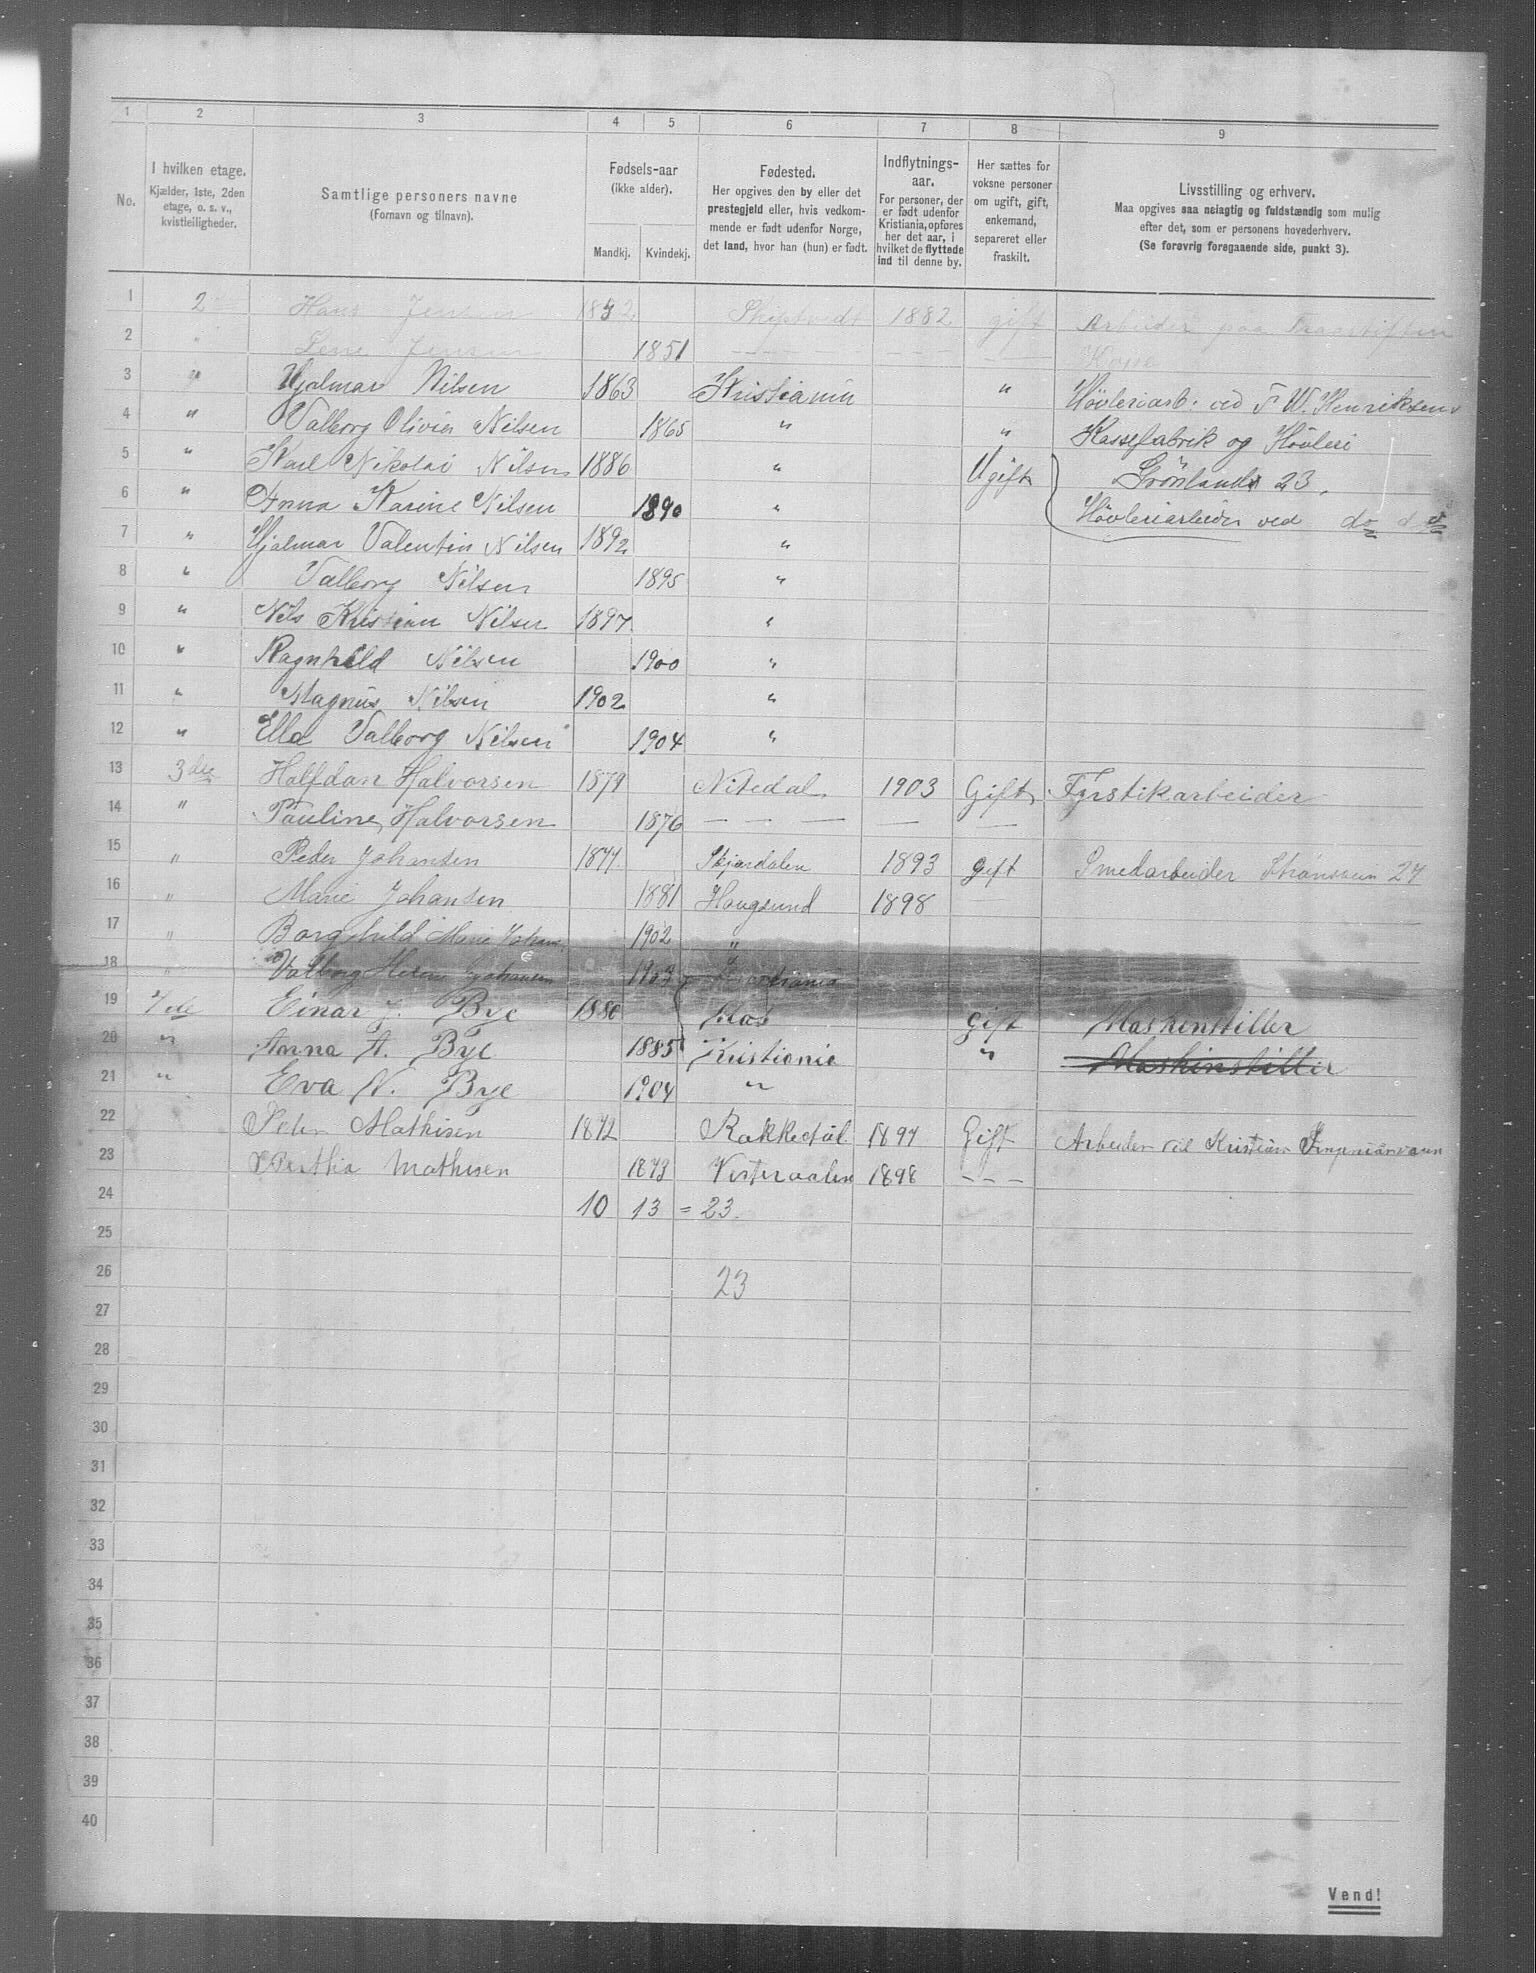 1 2 3 4 5 6 7 8 9
No. I hvilken etage. Kjælder, 1ste, 2den etage, o. s. v., kvistleiligheder. Samtlige personers navne (Fornavn og tilnavn). Fødsels-aar (ikke alder). Mandkj. Kvindekj. Fødested. Her opgives den by eller det prestegjeld eller, hvis vedkommende er født udenfor Norge, det land, hvor han (hun) er født. Indflytnings-aar. For personer, der er født udenfor Kristiania, opføres her det aar, i hvilket de flyttede ind til denne by. Her sættes for voksne personer om ugift, gift, enkemand, separeret eller fraskilt. Livsstilling og erhverv. Maa opgives saa nøiagtig og fuldstændig som mulig efter det, som er personens hovederhverv. (Se forøvrig foregaaende side, punkt 3).
1 2 Hans Jensen Skiptvedt 1882 gift Arbeider paa
2 " Lene Jensen 1851 — — — —
3 " Hjalmar Nilsen 1863 Kristiania " Høvleriarb. ved F. W. Henriksens
4 " Valborg Olivia Nilsen 1865 " " Kassefabrik og Høvleri
5 " Karl Nikolai Nilsen 1886 " Ugift Grønland 23.
6 " Anna Karine Nilsen 1890 " Høvleriarbeider ved do do
7 " Hjalmar Valentin Nilsen 1892 "
8 " Valborg Nilsen 1895 "
9 " Nils Kristian Nilsen 1897 "
10 " Ragnhild Nilsen 1900 "
11 " Magnus Nilsen 1902 "
12 " Ella Valborg Nilsen 1904 "
13 3die Halfdan Halvorsen 1879 Nitedal 1903 Gift Fyrstikarbeider
14 " Pauline Halvorsen 1876 — — — — —
15 " Peder Johansen 1877 Skjærdalen 1893 gift Smedarbeider 27
16 " Marie Johansen 1881 Hougsund 1898 —
17 " Borghild Marie Johans. 1902 "
18 " Valborg Helene Johansen 1903 Kristiania
19 Einar J. Bye 1880 Gift Maskinstiller
20 " Anna A. Bye 1885 Kristiania " Maskinstiller
21 " Eva N. Bye 1904 "
22 Peter Mathisen 1872 Rakkestad 1897 Gift Arbeider ved Kristiania
23 Berthia Mathisen 1873 Vesteraalen 1898 — — —
24 10 13 = 23.
25
26 23
27
28
29
30
31
32
33
34
35
36
37
38
39
40
Vend!